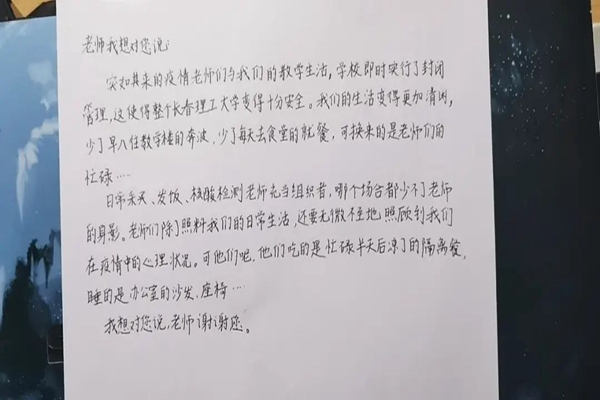 老师我想对您说:
突如其来的疫情老师们与我们的教学生活,学校即时实行了封闭
管理,这使得整个长春理工大学变得十分安全。我们的生活变得更加清闲,
少了早八往教学楼的奔波,少了每天去食堂的就餐,可换来的是老师们的
忙碌……
日常采买、发饭、核酸检测老师充当组织者,哪个场合都少不了老师
的身影。老师们除了照料我们的日常生活,还要无微不至地照顾到我们
在疫情中的心理状况。可他们呢,他们吃的是忙碌半天后凉了的隔离餐,
睡的是办公室的沙发、座椅…
我想对您说,老师谢谢您。